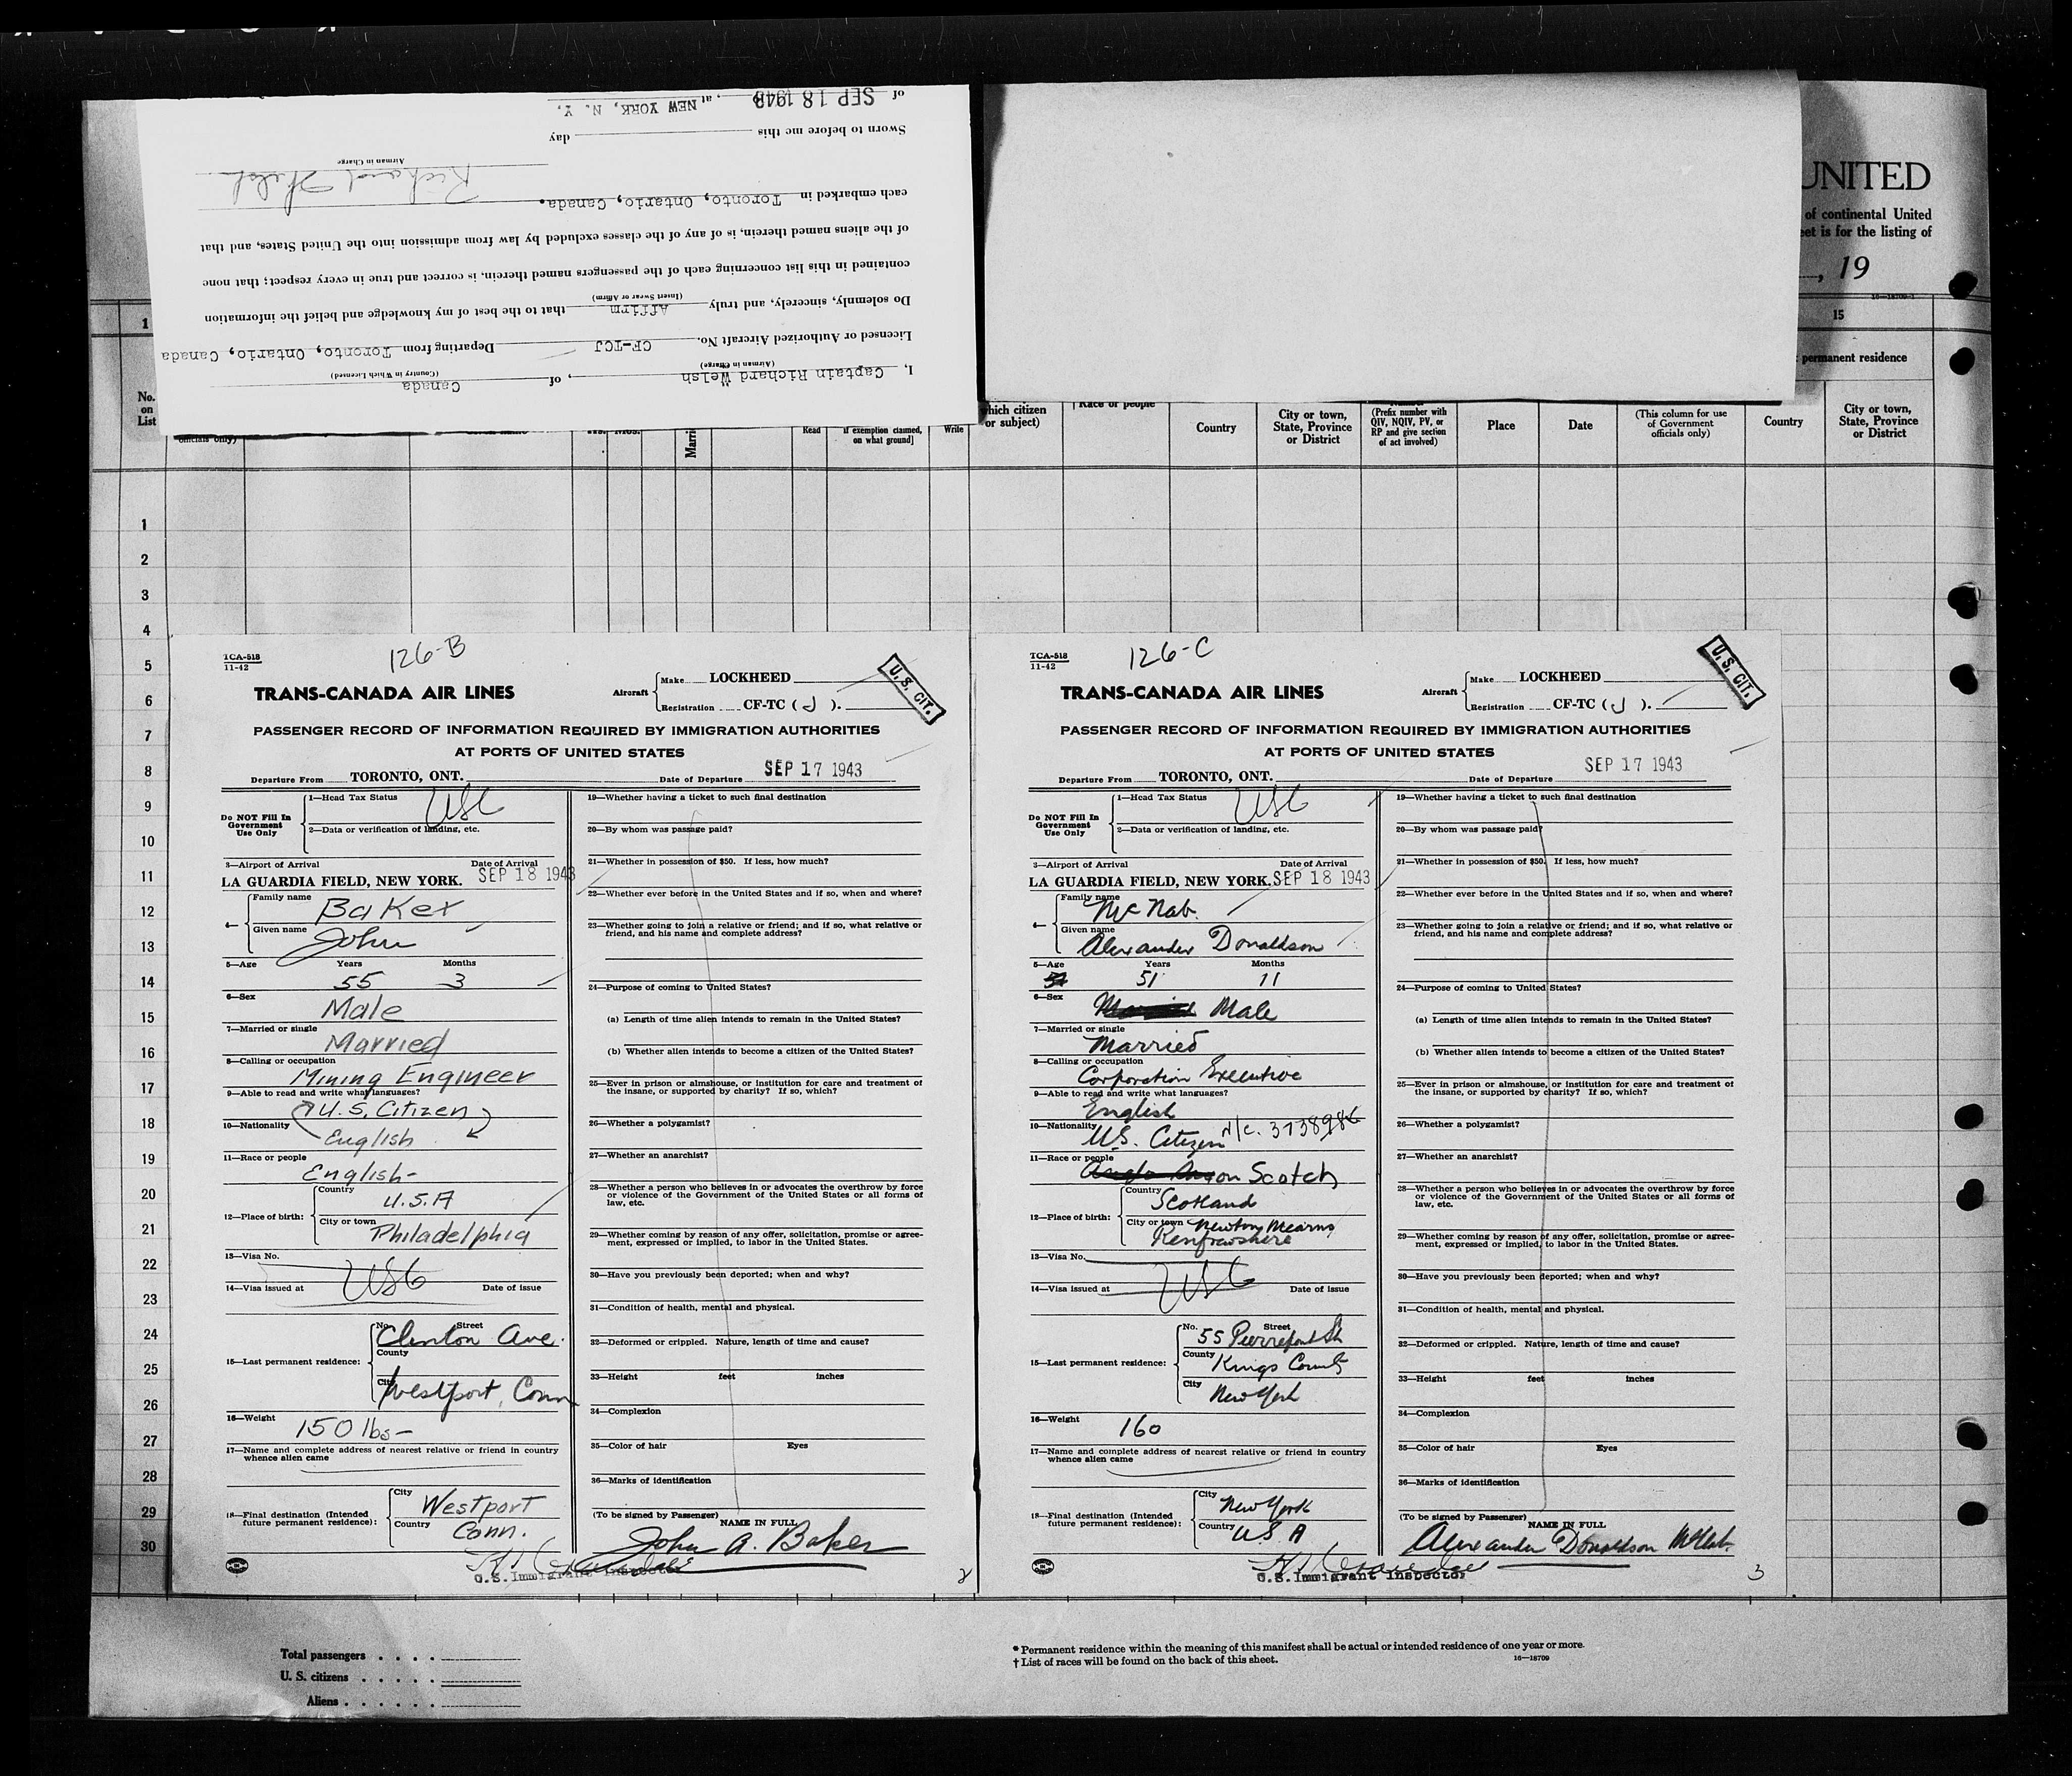 of SEP 18 1943, at NEW YORK, N. Y.
Sworn to before me this day
Airman in Charge
Richard Welsh
each embarked in Toronto, Ontario, Canada.
of the aliens named therein, is of any of the classes excluded by law from admission into the United States, and that
contained in this list concerning each of the passengers named therein, is correct and true in every respect; that none
(Insert Swear or Affirm)
Do solemnly, sincerely, and truly Affirm that to the best of my knowledge and belief the information
Licensed or Authorized Aircraft No. CF-TCJ Departing from Toronto, Ontario, Canada
(Airman in Charge) (Country in Which Licensed)
I, Captain Richard Welsh, of Canada
UNITED
of continental United
eet is for the listing of
, 19
16-18709-1
1
15
permanent residence
No.
on
List
officials only)
Yrs. Mos.
Marri
Read
if exemption claimed,
on what ground]
Write
which citizen
or subject)
Race or people
Country
City or town,
State, Province
or District
(Prefix number with
QIV, NQIV, PV, or
RP and give section
of act involved)
Place
Date
(This column for use
of Government
officials only)
Country
City or town,
State, Province
or District
1
2
3
4
5
6
7
8
9
10
11
12
13
14
15
16
17
18
19
20
21
22
23
24
25
26
27
28
29
30
TCA-518
11-42
126-B
TRANS-CANADA AIR LINES
Aircraft
Make LOCKHEED
Registration CF-TC ( J ).
U. S. CIT.
PASSENGER RECORD OF INFORMATION REQUIRED BY IMMIGRATION AUTHORITIES
AT PORTS OF UNITED STATES
Departure From TORONTO, ONT. Date of Departure SEP 17 1943
Do NOT Fill In
Government
Use Only
1—Head Tax Status USC
2—Data or verification of landing, etc.
3—Airport of Arrival Date of Arrival
LA GUARDIA FIELD, NEW YORK. SEP 18 1943
4— Family name Baker
Given name John
5—Age Years Months
55 3
6—Sex
Male
7—Married or single
Married
8—Calling or occupation
Mining Engineer
9—Able to read and write what languages?
U.S. Citizen
10—Nationality
English
11—Race or people
English-
12—Place of birth:
Country
U.S.A
City or town
Philadelphia
13—Visa No.
USC
14—Visa issued at Date of issue
15—Last permanent residence:
No. Street
Clinton Ave.
County
City
Westport, Conn
16—Weight
150 lbs-
17—Name and complete address of nearest relative or friend in country
whence alien came
18—Final destination (Intended
future permanent residence):
City
Westport
Country
Conn.
19—Whether having a ticket to such final destination
20—By whom was passage paid?
21—Whether in possession of $50. If less, how much?
22—Whether ever before in the United States and if so, when and where?
23—Whether going to join a relative or friend; and if so, what relative or
friend, and his name and complete address?
24—Purpose of coming to United States?
(a) Length of time alien intends to remain in the United States?
(b) Whether alien intends to become a citizen of the United States?
25—Ever in prison or almshouse, or institution for care and treatment of
the insane, or supported by charity? If so, which?
26—Whether a polygamist?
27—Whether an anarchist?
28—Whether a person who believes in or advocates the overthrow by force
or violence of the Government of the United States or all forms of
law, etc.
29—Whether coming by reason of any offer, solicitation, promise or agree-
ment, expressed or implied, to labor in the United States.
30—Have you previously been deported; when and why?
31—Condition of health, mental and physical.
32—Deformed or crippled. Nature, length of time and cause?
33—Height feet inches
34—Complexion
35—Color of hair Eyes
36—Marks of identification
(To be signed by Passenger)
NAME IN FULL
John A. Baker
U.S. Immigrant Inspector
2
TCA-518
11-42
126-C
TRANS-CANADA AIR LINES
Aircraft
Make LOCKHEED
Registration CF-TC ( J ).
U. S. CIT.
PASSENGER RECORD OF INFORMATION REQUIRED BY IMMIGRATION AUTHORITIES
AT PORTS OF UNITED STATES
Departure From TORONTO, ONT. Date of Departure SEP 17 1943
Do NOT Fill In
Government
Use Only
1—Head Tax Status USC
2—Data or verification of landing, etc.
3—Airport of Arrival Date of Arrival
LA GUARDIA FIELD, NEW YORK. SEP 18 1943
4— Family name McNab.
Given name Alexander Donaldson
5—Age Years Months
51 11
6—Sex
Male
7—Married or single
Married
8—Calling or occupation
Corporation Executive
9—Able to read and write what languages?
English
10—Nationality
U.S. Citizen N/C. 3738986
11—Race or people
Scotch
12—Place of birth:
Country
Scotland
City or town Newton Mearns
Renfrewshire
13—Visa No.
USC
14—Visa issued at Date of issue
15—Last permanent residence:
No. Street
55 Pierrepont St
County
Kings County
City
New York
16—Weight
160
17—Name and complete address of nearest relative or friend in country
whence alien came
18—Final destination (Intended
future permanent residence):
City
New York
Country
U.S.A
19—Whether having a ticket to such final destination
20—By whom was passage paid?
21—Whether in possession of $50. If less, how much?
22—Whether ever before in the United States and if so, when and where?
23—Whether going to join a relative or friend; and if so, what relative or
friend, and his name and complete address?
24—Purpose of coming to United States?
(a) Length of time alien intends to remain in the United States?
(b) Whether alien intends to become a citizen of the United States?
25—Ever in prison or almshouse, or institution for care and treatment of
the insane, or supported by charity? If so, which?
26—Whether a polygamist?
27—Whether an anarchist?
28—Whether a person who believes in or advocates the overthrow by force
or violence of the Government of the United States or all forms of
law, etc.
29—Whether coming by reason of any offer, solicitation, promise or agree-
ment, expressed or implied, to labor in the United States.
30—Have you previously been deported; when and why?
31—Condition of health, mental and physical.
32—Deformed or crippled. Nature, length of time and cause?
33—Height feet inches
34—Complexion
35—Color of hair Eyes
36—Marks of identification
(To be signed by Passenger)
NAME IN FULL
Alexander Donaldson McNab.
U.S. Immigrant Inspector
3
Total passengers . . . .
U. S. citizens . . . . .
Aliens . . . . . .
* Permanent residence within the meaning of this manifest shall be actual or intended residence of one year or more.
† List of races will be found on the back of this sheet.
16—18709